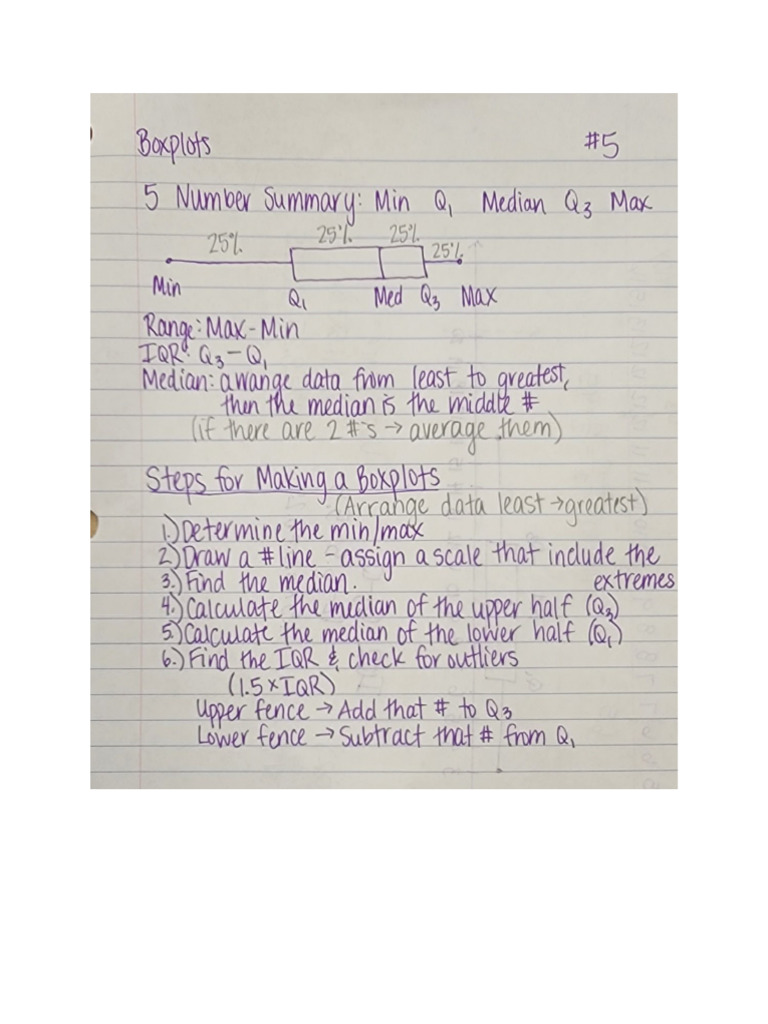 Boxplots #5
5 Number Summary: Min Q₁ Median Q₃ Max
25% 25% 25% 25%
Min Q₁ Med Q₃ Max
Range: Max - Min
IQR: Q₃ - Q₁
Median: arrange data from least to greatest,
then the median is the middle #
(if there are 2 #'s → average them)
Steps for Making a Boxplots
(Arrange data least → greatest)
1.) Determine the min/max
2.) Draw a # line - assign a scale that include the
extremes
3.) Find the median.
4.) Calculate the median of the upper half (Q₃)
5.) Calculate the median of the lower half (Q₁)
6.) Find the IQR & check for outliers
(1.5 × IQR)
Upper fence → Add that # to Q₃
Lower fence → Subtract that # from Q₁